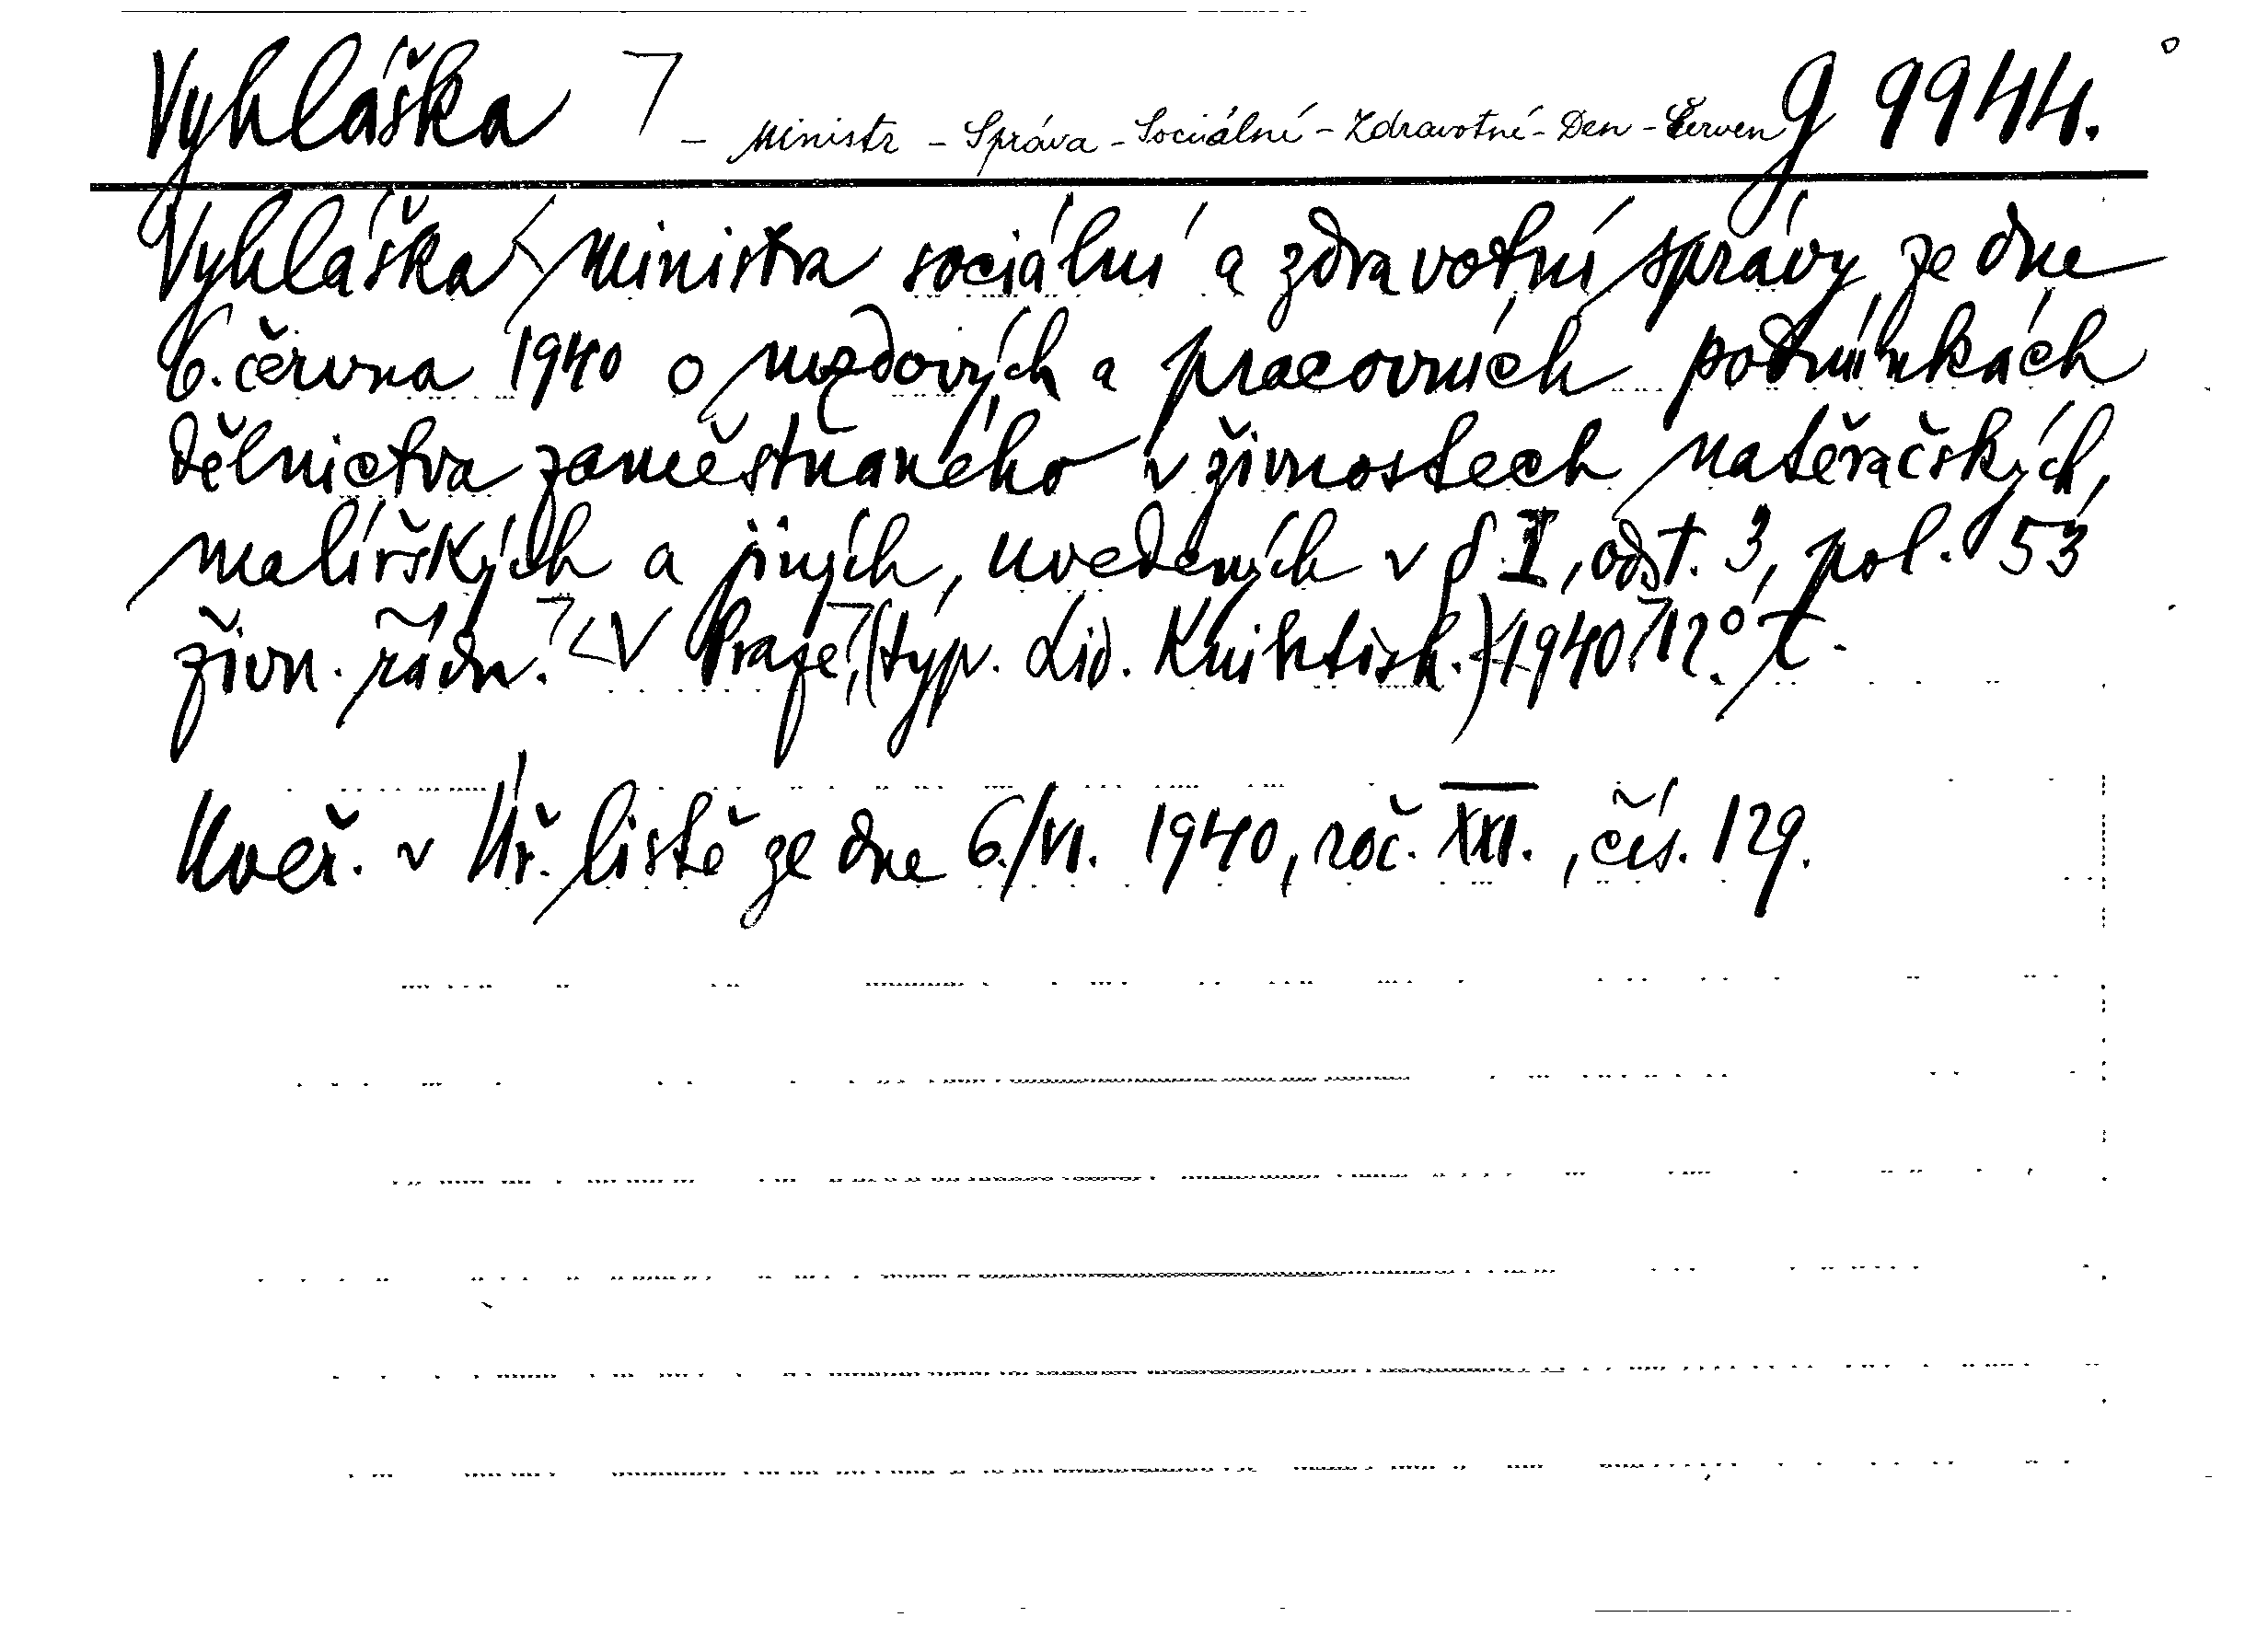 Vyhláška - Ministr - Správa - Sociální - Zdravotní - Den - Červen g 9944.
Vyhláška ministra sociální a zdravotní správy ze dne
6. června 1940 o mzdových a pracovních podmínkách
dělnictva zaměstnaného v živnostech natěračských,
malířských a jiných, uvedených v § I, odst. 3, pol. 53
živn. řádu. V Praze, (typ. Lid. Knihtisk.) 1940. 12°. T.
Uveř. v Úř. listě ze dne 6./VI. 1940, roč. XXI., čís. 129.